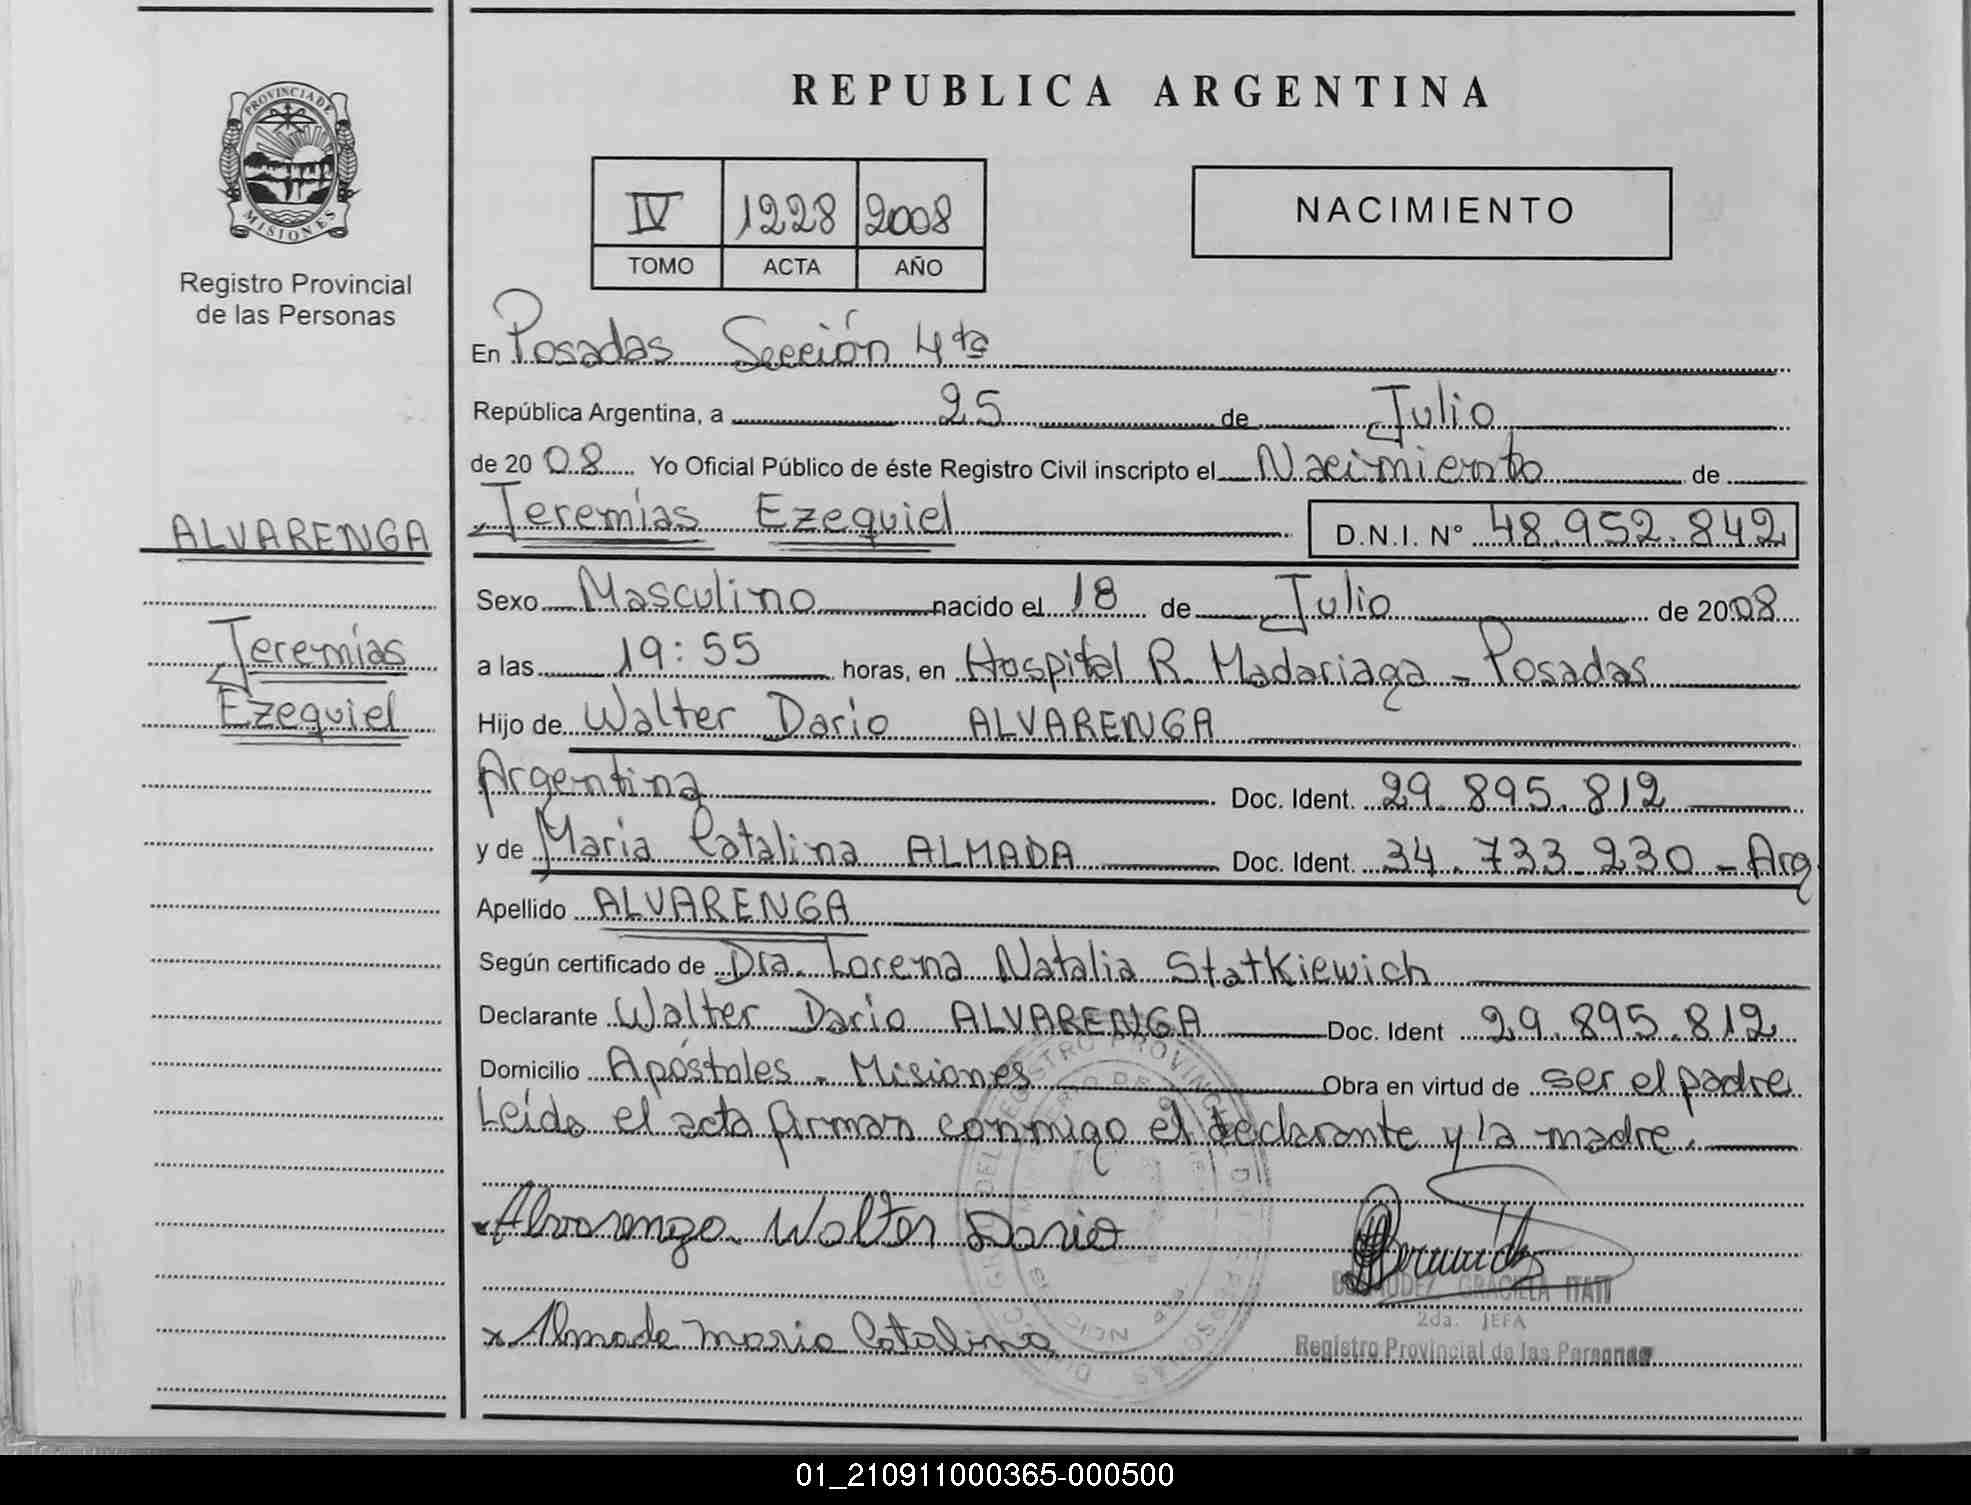 PROVINCIA DE
MISIONES
Registro Provincial
de las Personas
ALVARENGA
Jeremías
Ezequiel
REPUBLICA ARGENTINA
IV 1228 2008
TOMO ACTA AÑO
NACIMIENTO
En Posadas Sección 4ta
República Argentina, a 25 de Julio
de 2008 Yo Oficial Público de éste Registro Civil inscripto el Nacimiento de
Jeremías Ezequiel D.N.I. N° 48.952.842
Sexo Masculino nacido el 18 de Julio de 2008
a las 19:55 horas, en Hospital R. Madariaga - Posadas
Hijo de Walter Dario ALVARENGA
Argentina Doc. Ident. 29.895.812
y de Maria Catalina ALMADA Doc. Ident. 34.733.230 - Arg
Apellido ALVARENGA
Según certificado de Dra. Lorena Natalia Statkiewich
Declarante Walter Dario ALVARENGA Doc. Ident 29.895.812
Domicilio Apóstoles - Misiones Obra en virtud de ser el padre
Leída el acta firman conmigo el declarante y la madre.
x Alvarenga Walter Dario
Bermúdez
BERMUDEZ GRACIELA ITATI
2da. JEFA
Registro Provincial de las Personas
x Almada Maria Catalina
01_210911000365-000500